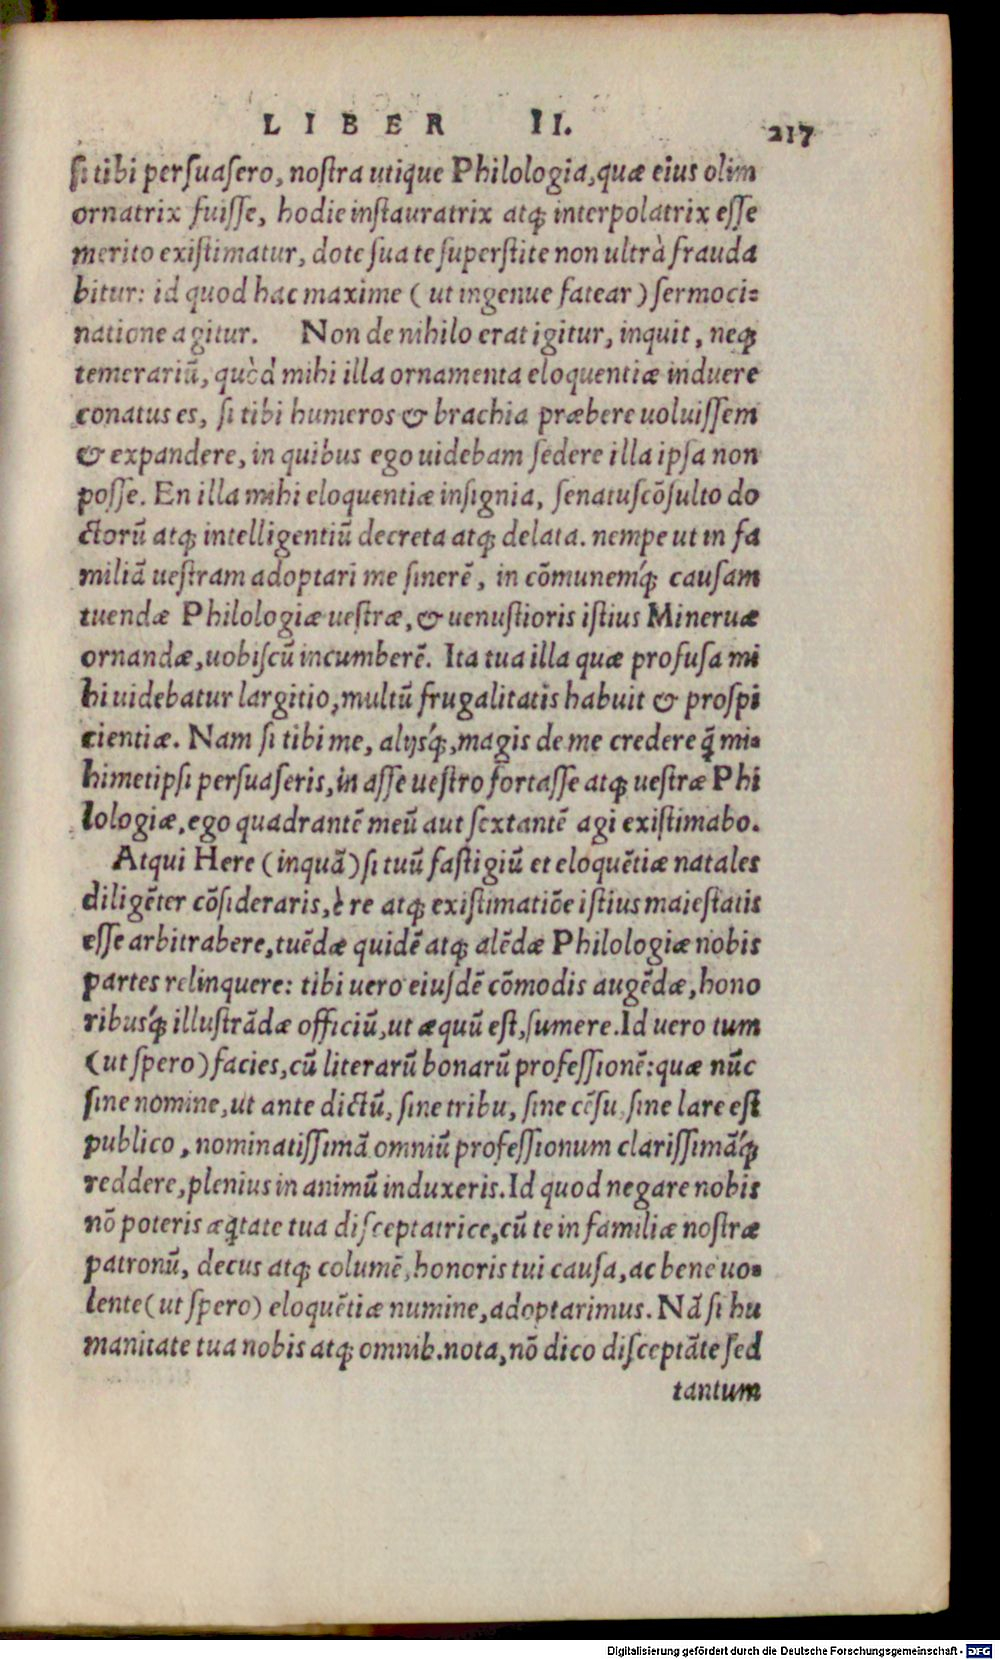 LIBER II. 217
si tibi persuasero, nostra utique Philologia, quæ eius olim
ornatrix fuisse, hodie instauratrix atq; interpolatrix esse
merito existimatur, dote sua te superstite non ultrà frauda
bitur: id quod hac maxime (ut ingenue fatear) sermoci=
natione agitur. Non de nihilo erat igitur, inquit, neq;
temerariũ, quòd mihi illa ornamenta eloquentiæ induere
conatus es, si tibi humeros & brachia præbere uoluissem
& expandere, in quibus ego uidebam sedere illa ipsa non
posse. En illa mihi eloquentiæ insignia, senatuscõsulto do
ctorũ atq; intelligentiũ decreta atq; delata. nempe ut in fa
miliã uestram adoptari me sinerẽ, in cõmunemq́; causam
tuendæ Philologiæ uestræ, & uenustioris istius Mineruæ
ornandæ, uobiscũ incumberẽ. Ita tua illa quæ profusa mi
hi uidebatur largitio, multũ frugalitatis habuit & prospi
cientiæ. Nam si tibi me, alijsq́;, magis de me credere q̃ mi=
himetipsi persuaseris, in asse uestro fortasse atq; uestræ Phi
lologiæ, ego quadrantẽ meũ aut sextantẽ agi existimabo.
Atqui Here (inquã) si tuũ fastigiũ et eloquẽtiæ natales
diligẽter cõsideraris, è re atq; existimatiõe istius maiestatis
esse arbitrabere, tuẽdæ quidẽ atq; alẽdæ Philologiæ nobis
partes relinquere: tibi uero eiusdẽ cõmodis augẽdæ, hono
ribusq́; illustrãdæ officiũ, ut æquũ est, sumere. Id uero tum
(ut spero) facies, cũ literarũ bonarũ professionẽ: quæ nũc
sine nomine, ut ante dictũ, sine tribu, sine cẽsu, sine lare est
publico, nominatissimã omniũ professionum clarissimãq́;
reddere, plenius in animũ induxeris. Id quod negare nobis
nõ poteris æq̃tate tua disceptatrice, cũ te in familiæ nostræ
patronũ, decus atq; columẽ, honoris tui causa, ac bene uo=
lente (ut spero) eloquẽtiæ numine, adoptarimus. Nã si hu
manitate tua nobis atq; omnib. nota, nõ dico disceptãte sed
tantum
Digitalisierung gefördert durch die Deutsche Forschungsgemeinschaft - DFG